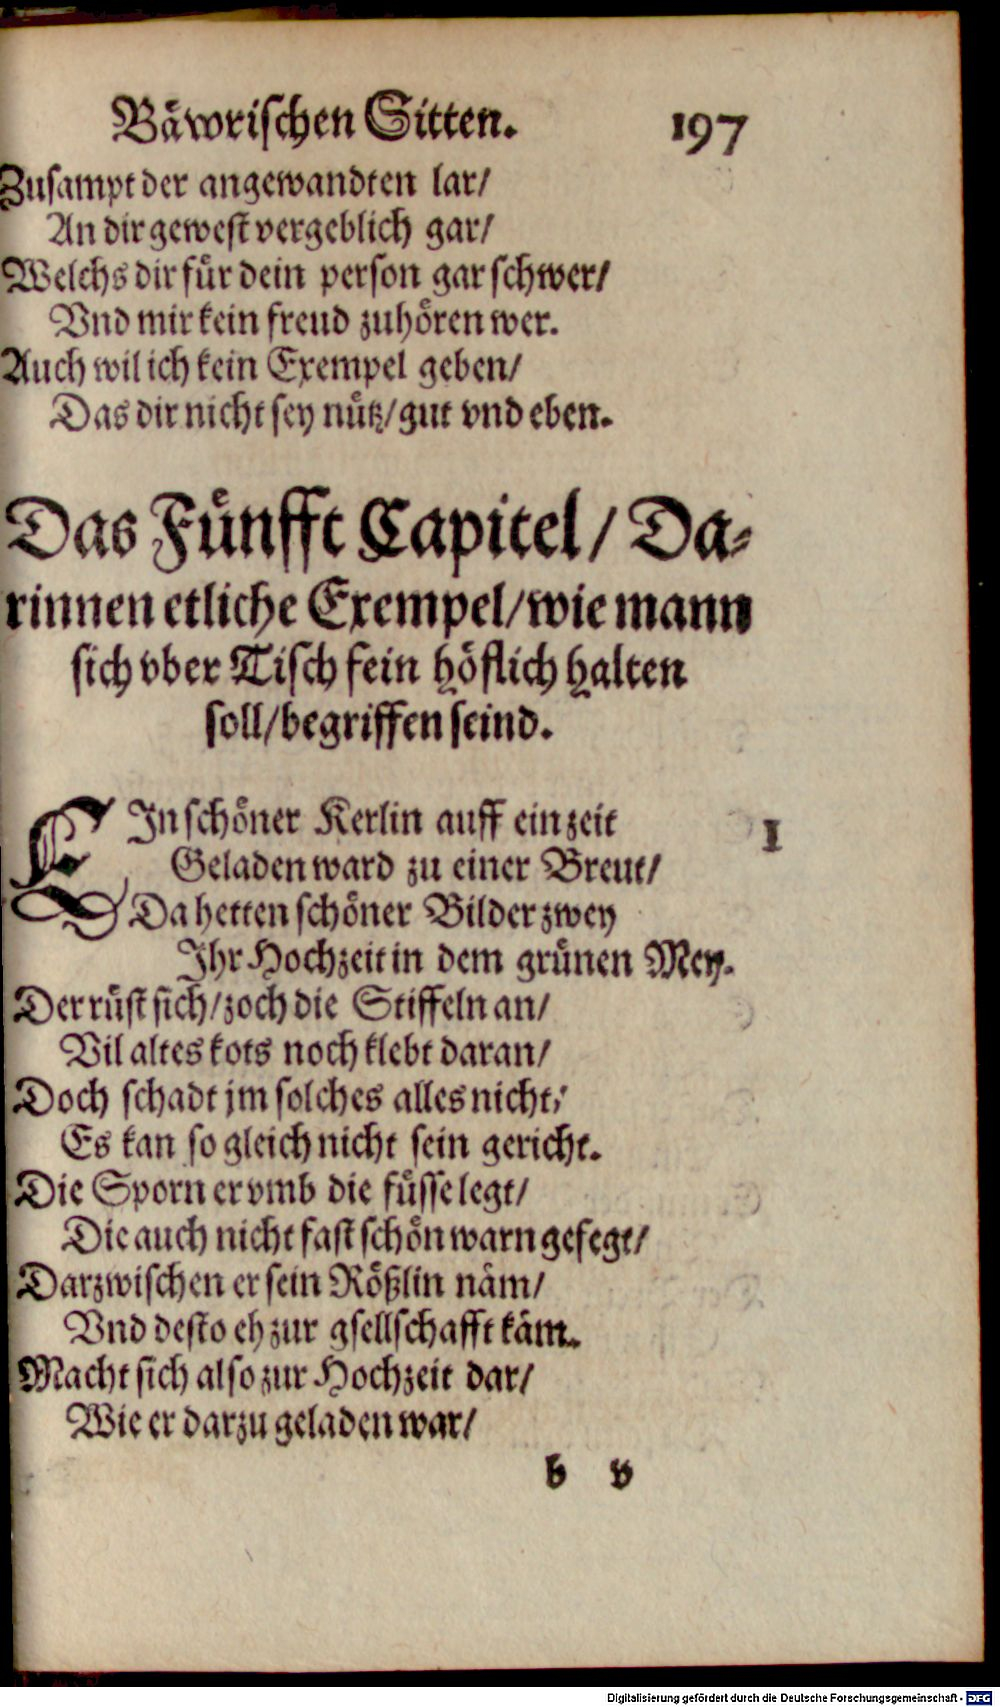 Bäwrischen Sitten. 197
Zusampt der angewandten lar/
An dir gewest vergeblich gar/
Welchs dir für dein person gar schwer/
Vnd mir kein freud zuhören wer.
Auch wil ich kein Exempel geben/
Das dir nicht sey nütz/gut vnd eben.
Das Fünfft Capitel/ Da-
rinnen etliche Exempel/wie mann
sich vber Tisch fein höflich halten
soll/begriffen seind.
EIn schöner Kerlin auff ein zeit 1
Geladen ward zu einer Breut/
Da hetten schöner Bilder zwey
Ihr Hochzeit in dem grünen Mey.
Der rüst sich/zoch die Stiffeln an/
Vil altes kots noch klebt daran/
Doch schadt jm solches alles nicht/
Es kan so gleich nicht sein gericht.
Die Sporn er vmb die füsse legt/
Die auch nicht fast schön warn gefegt/
Darzwischen er sein Rößlin näm/
Vnd desto eh zur gsellschafft käm.
Macht sich also zur Hochzeit dar/
Wie er darzu geladen war/
b v
Digitalisierung gefördert durch die Deutsche Forschungsgemeinschaft - DFG